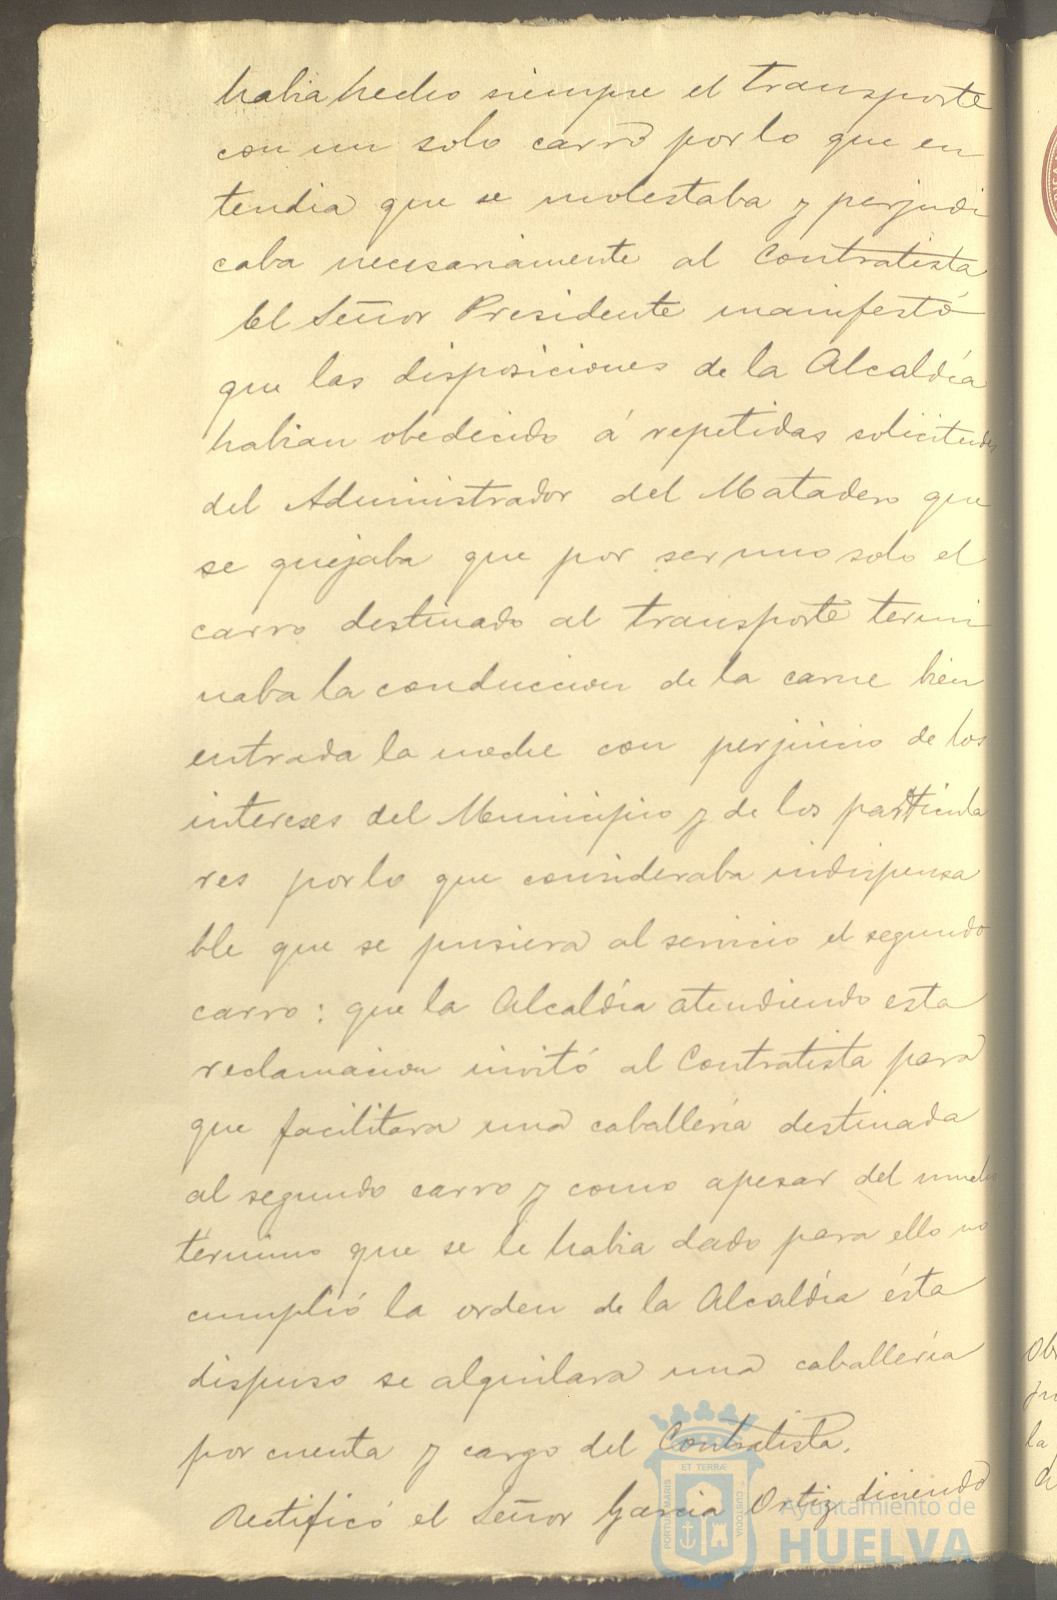 habia hecho siempre el transporte
con un solo carro por lo que en
tendia que se molestaba y perjudi
caba necesariamente al Contratista
El Señor Presidente manifestó
que las disposiciones de la Alcaldía
habian obedecido á repetidas solicitudes
del Administrador del Matadero que
se quejaba que por ser uno solo el
carro destinado al transporte termi
naba la conduccion de la carne bien
entrada la noche con perjuicio de los
intereses del Municipio y de los particula
res por lo que consideraba indispensa
ble que se pusiera al servicio el segundo
carro: que la Alcaldía atendiendo esta
reclamacion invitó al Contratista para
que facilitara una caballería destinada
al segundo carro y como apesar del mucho
término que se le habia dado para ello no
cumplió la orden de la Alcaldía ésta
dispuso se alquilara una caballería
por cuenta y cargo del Contratista.
Rectificó el Señor Garcia Ortiz diciendo
ET TERRÆ
PORTUS MARIS
CUSTODIA
Ayuntamiento de
HUELVA